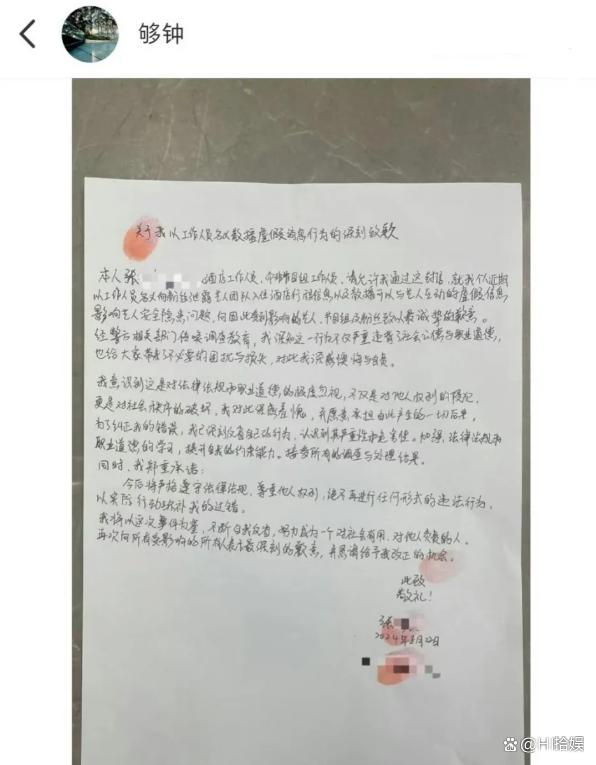 够钟
关于我以工作人员名义散播虚假消息行为的深刻致歉
本人张 酒店工作人员,个非节目组工作人员。请允许我通过这封信,就我个人近期
以工作人员名义向粉丝泄露艺人团队入住酒店行程信息以及散播可以与艺人互动的虚假信息
影响艺人安全隐患问题,向因此受到影响的艺人,节目组及粉丝致以最诚挚的歉意。
经警方相关部门传唤调查教育,我深知这一行为不仅严重违背了社会公德与职业道德,
也给大家带来了不必要的困扰与损失,对此我深感懊悔与自责。
我意识到这是对法律法规和职业道德的极度忽视,不仅是对他人权利的侵犯,
更是对社会秩序的破坏,我对此深感羞愧,并愿意承担由此产生的一切后果。
为了纠正我的错误,我已深刻反省自己的行为,认识到其严重性和危害性。加强法律法规和
职业道德的学习,提升自我约束能力。接受所有的调查与处理结果。
同时,我郑重承诺:
今后将严格遵守法律法规,尊重他人权利,绝不再进行任何形式的违法行为,
以实际行动弥补我的过错。
我将以这次事件为鉴,不断自我反省,努力成为一个对社会有用,对他人负责的人。
再次向所有受影响的所有人表示最深刻的歉意,并恳请给予我改正的机会。
此致
敬礼!
张
2024年 月22日
@HI拾娱